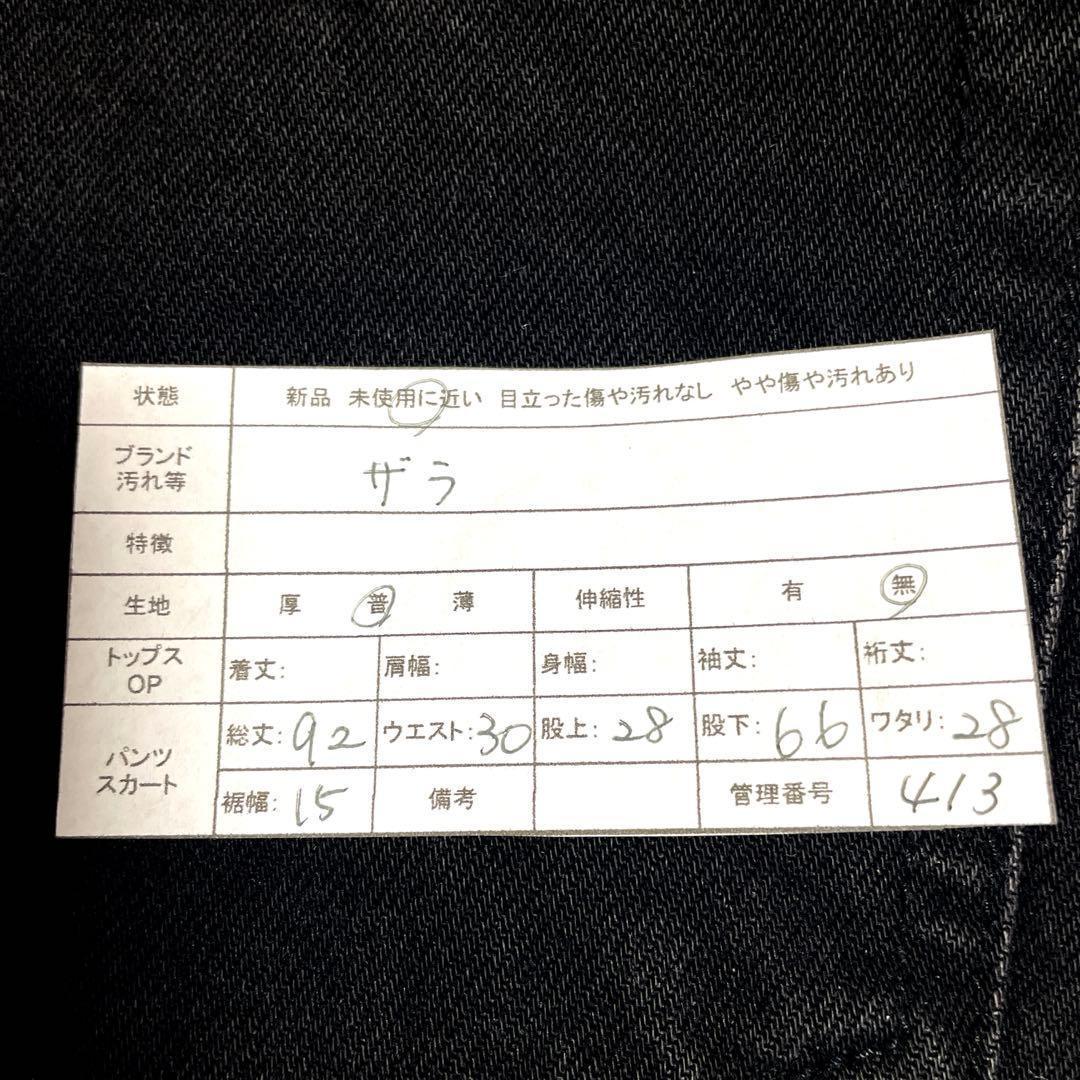 状態 新品 未使用に近い 目立った傷や汚れなし やや傷や汚れあり
ブランド
汚れ等 ザラ
特徴
生地 厚 普 薄 伸縮性 有 無
トップス
OP 着丈: 肩幅: 身幅: 袖丈: 裄丈:
パンツ
スカート 総丈:92 ウエスト:30 股上:28 股下:66 ワタリ:28
裾幅:15 備考 管理番号 413